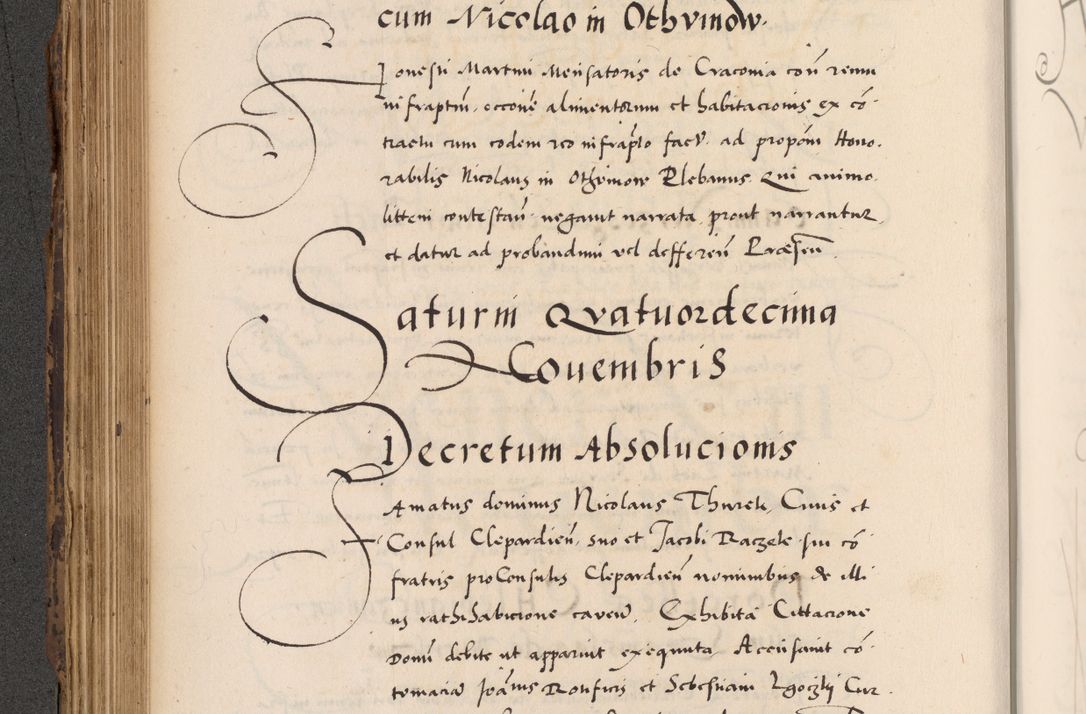 cum Nicolao in Othvinow.
Honesti Martini Mensatoris de Craconia con̄ remu
infraptm̄. occone alimentorum et habitacionis ex cō
tractu cum eodem reo infrapto fact̄. ad propōm Hono.
rabilis Nicolaus in Othvinow Plebanus. Qui animo.
littem contestan̄. negavit narrata prout narrantur
et datur ad probandum vel defferen̄ Præsen̄.
Saturni Qvatuordecima
Nouembris
Decretum Absolucionis
Famatus dominus Nicolaus Thurek, Ciuis et
Consul Clepardien̄. suo et Jacobi Raczek sui cō
fratris proConsulis Clepardien̄ nominibus de illi
us rathihabicione caven̄. Exhibita Cittacione
Domū debite ut apparuit exequuta. Accusauit cō
tumaciā Joānis Bonificis et Sebestiani Zgoczki Cur